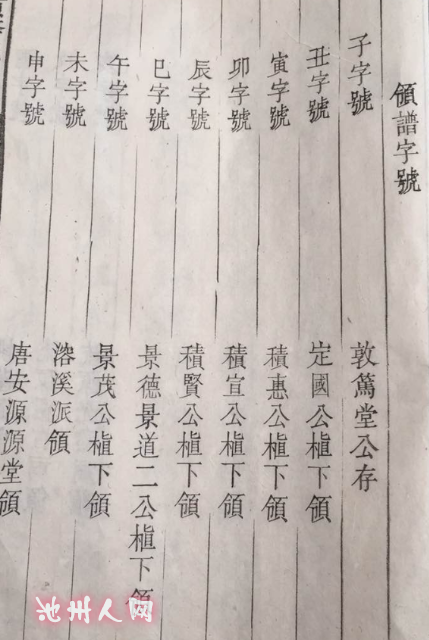 領譜字號
子字號 敦篤堂公存
丑字號 定國公植下領
寅字號 積惠公植下領
卯字號 積宣公植下領
辰字號 積賢公植下領
巳字號 景德景道二公植下領
午字號 景茂公植下領
未字號 溶溪派領
申字號 唐安源源堂領
池州人网